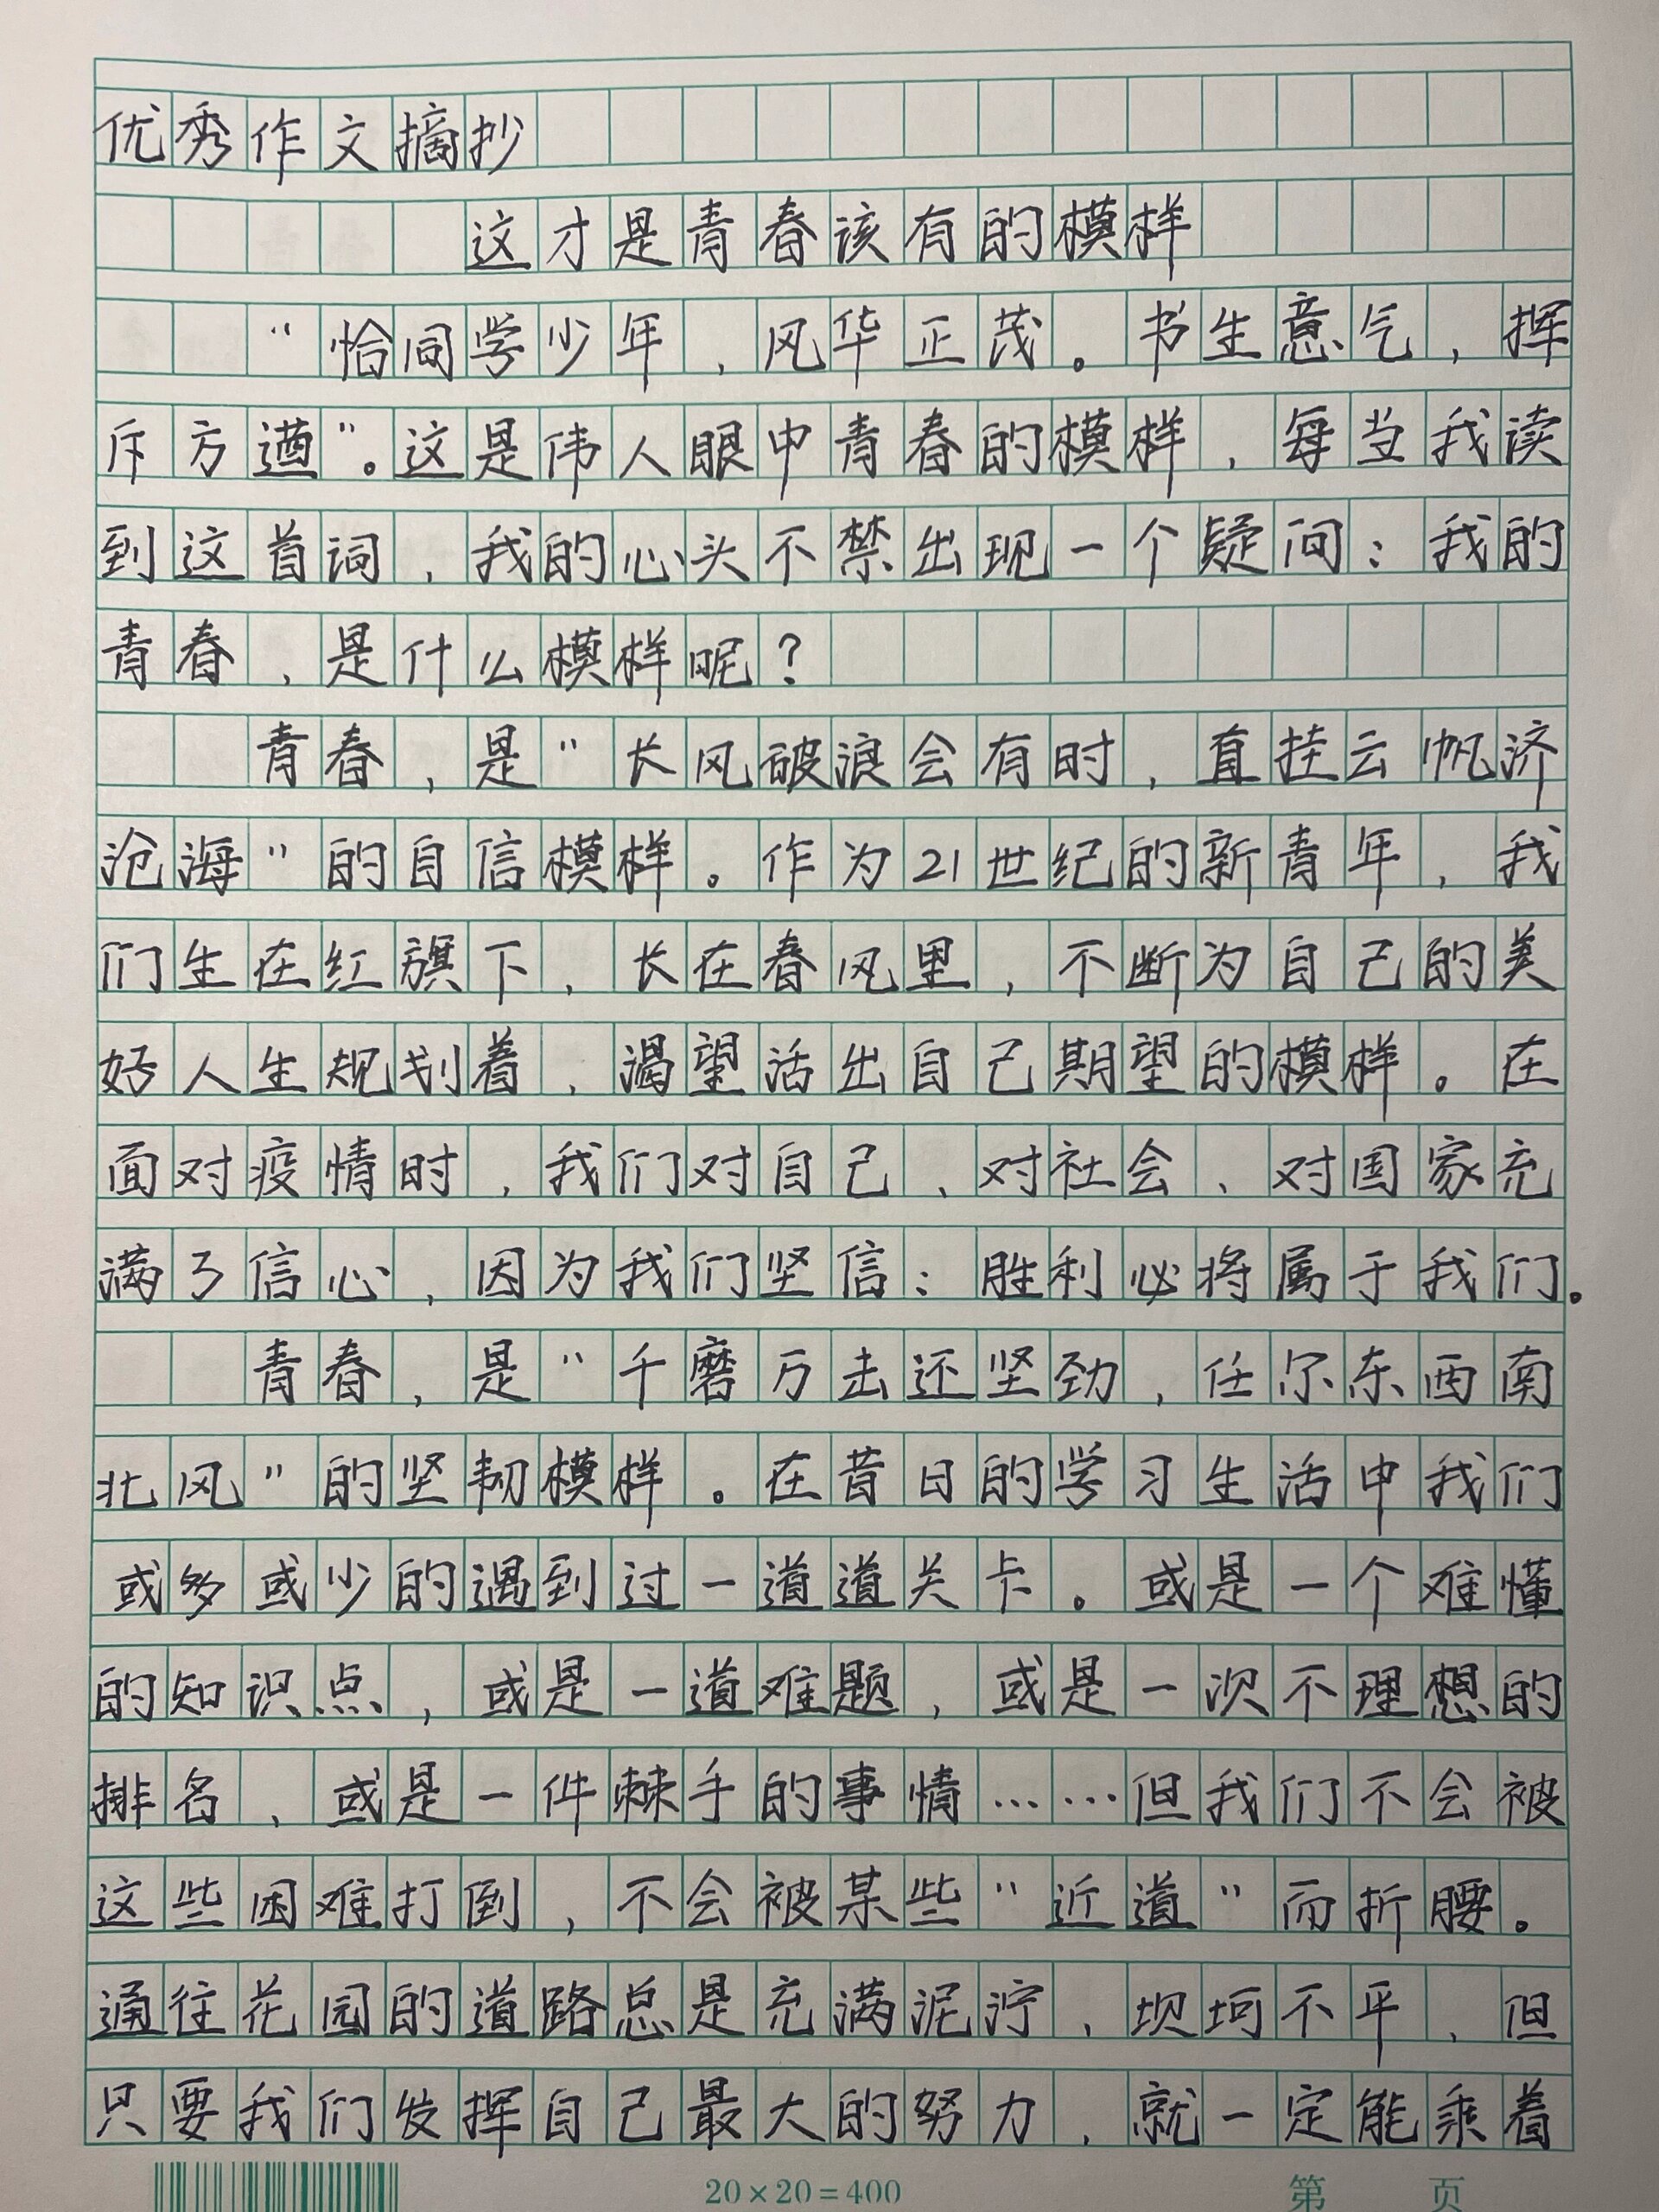 优秀作文摘抄
这才是青春该有的模样
“恰同学少年，风华正茂。书生意气，挥
斥方遒”。这是伟人眼中青春的模样，每当我读
到这首词，我的心头不禁出现一个疑问：我的
青春，是什么模样呢？
青春，是“长风破浪会有时，直挂云帆济
沧海”的自信模样。作为21世纪的新青年，我
们生在红旗下，长在春风里，不断为自己的美
好人生规划着，渴望活出自己期望的模样。在
面对疫情时，我们对自己、对社会、对国家充
满了信心，因为我们坚信：胜利必将属于我们。
青春，是“千磨万击还坚劲，任尔东西南
北风”的坚韧模样。在昔日的学习生活中我们
或多或少的遇到过一道道关卡。或是一个难懂
的知识点，或是一道难题，或是一次不理想的
排名，或是一件棘手的事情……但我们不会被
这些困难打倒，不会被某些“近道”而折腰。
通往花园的道路总是充满泥泞，坝坷不平，但
只要我们发挥自己最大的努力，就一定能乘着
20×20=400
第 页